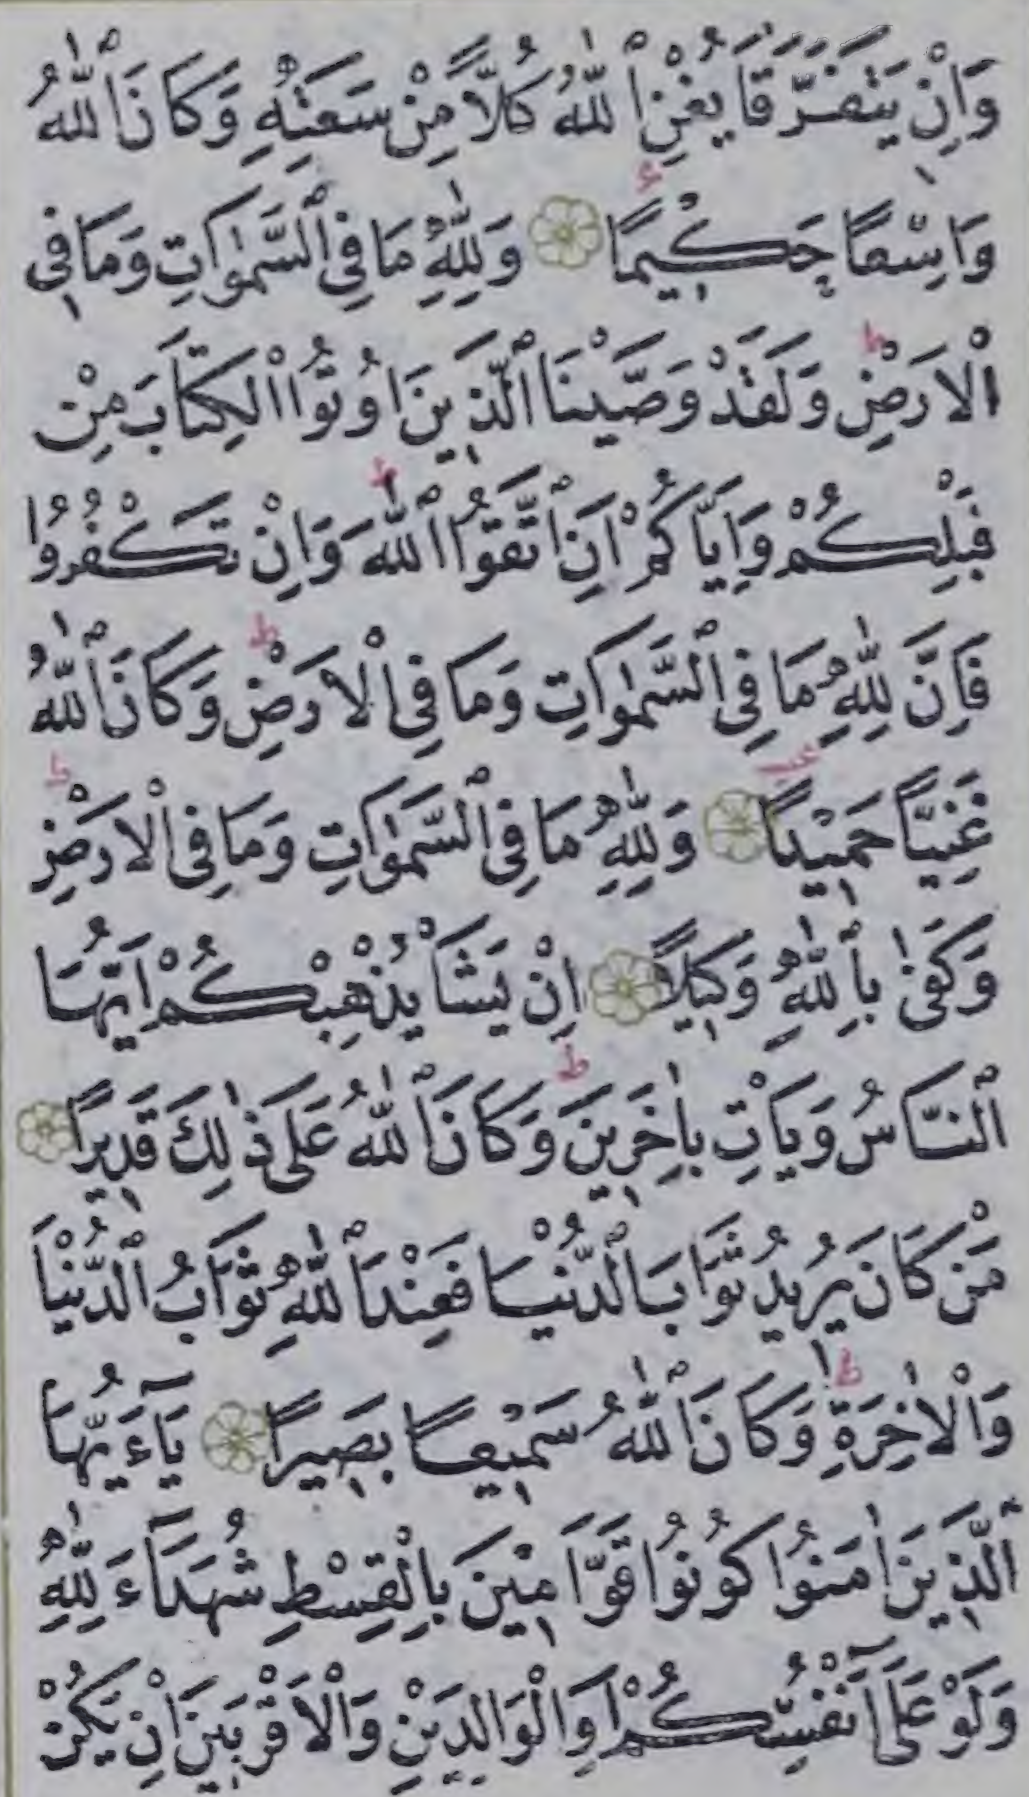 وَاِنْ يَتَفَرَّقَا يُغْنِ ٱللّٰهُ كُلًّا مِنْ سَعَتِهِ وَكَانَ ٱللّٰهُ
وَاسِعًا حَكِيمًا وَلِلّٰهِ مَا فِي ٱلسَّمٰوَاتِ وَمَا فِي
ٱلْاَرْضِ ط وَلَقَدْ وَصَّيْنَا ٱلَّذِينَ اُوتُوا ٱلْكِتَابَ مِنْ
قَبْلِكُمْ وَاِيَّاكُمْ اَنِ ٱتَّقُوا ٱللّٰهَ ط وَاِنْ تَكْفُرُوا
فَاِنَّ لِلّٰهِ مَا فِي ٱلسَّمٰوَاتِ وَمَا فِي ٱلْاَرْضِ ط وَكَانَ ٱللّٰهُ
غَنِيًّا حَمِيدًا وَلِلّٰهِ مَا فِي ٱلسَّمٰوَاتِ وَمَا فِي ٱلْاَرْضِ ط
وَكَفٰى بِٱللّٰهِ وَكِيلًا اِنْ يَشَأْ يُذْهِبْكُمْ اَيُّهَا
ٱلنَّاسُ وَيَأْتِ بِاٰخَرِينَ ط وَكَانَ ٱللّٰهُ عَلَى ذٰلِكَ قَدِيرًا
مَنْ كَانَ يُرِيدُ ثَوَابَ ٱلدُّنْيَا فَعِنْدَ ٱللّٰهِ ثَوَابُ ٱلدُّنْيَا
وَٱلْاٰخِرَةِ ط وَكَانَ ٱللّٰهُ سَمِيعًا بَصِيرًا يَآءَيُّهَا
ٱلَّذِينَ اٰمَنُوا كُونُوا قَوَّامِينَ بِالْقِسْطِ شُهَدَآءَ لِلّٰهِ
وَلَوْ عَلَىٓ اَنْفُسِكُمْ اَوِ الْوَالِدَيْنِ وَالْاَقْرَبِينَ اِنْ يَكُنْ